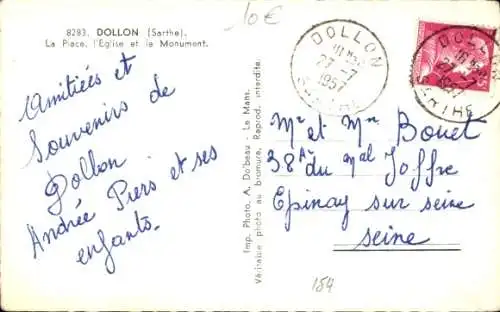 8283. DOLLON (Sarthe).
La Place, l'Eglise et le Monument.
10 €
Amitiées et
Souvenirs de
Dollon
Andrée Piers et ses
enfants.
Imp. Photo. A. Dolbeau - Le Mans.
Véritable photo au bromure, Reprod. interdite.
DOLLON
27-7
1957
SARTHE
DOLLON
27-7
1957
SARTHE
Mr et Mme Bouet
38 Av du mal Joffre
Epinay sur seine
seine
184